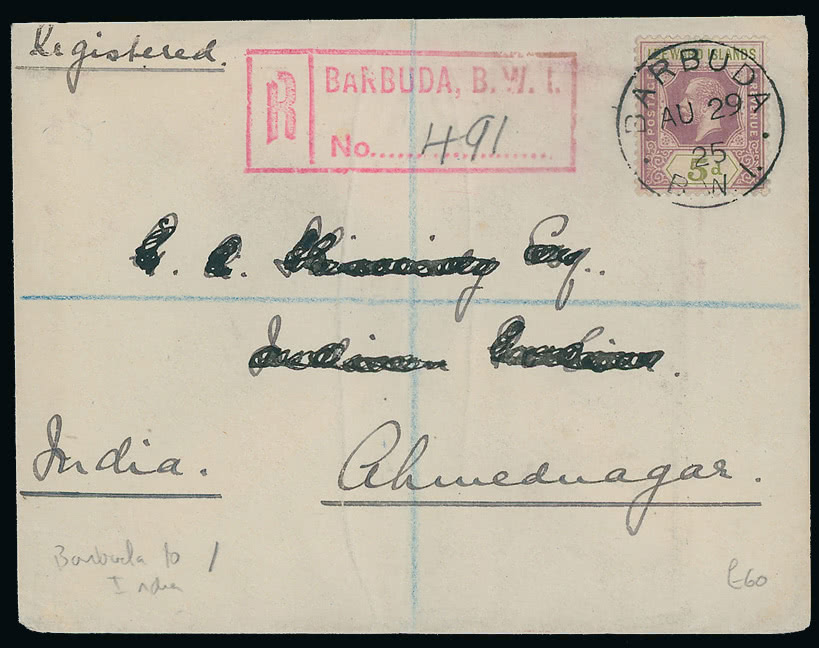 Registered.
R
BARBUDA, B. W. I.
No. 491
LEEWARD ISLANDS
POSTAGE
REVENUE
5d
BARBUDA
AU 29
25
B. W. I.
Esq.
India.
Ahmednagar.
Barbuda to /
India
£60